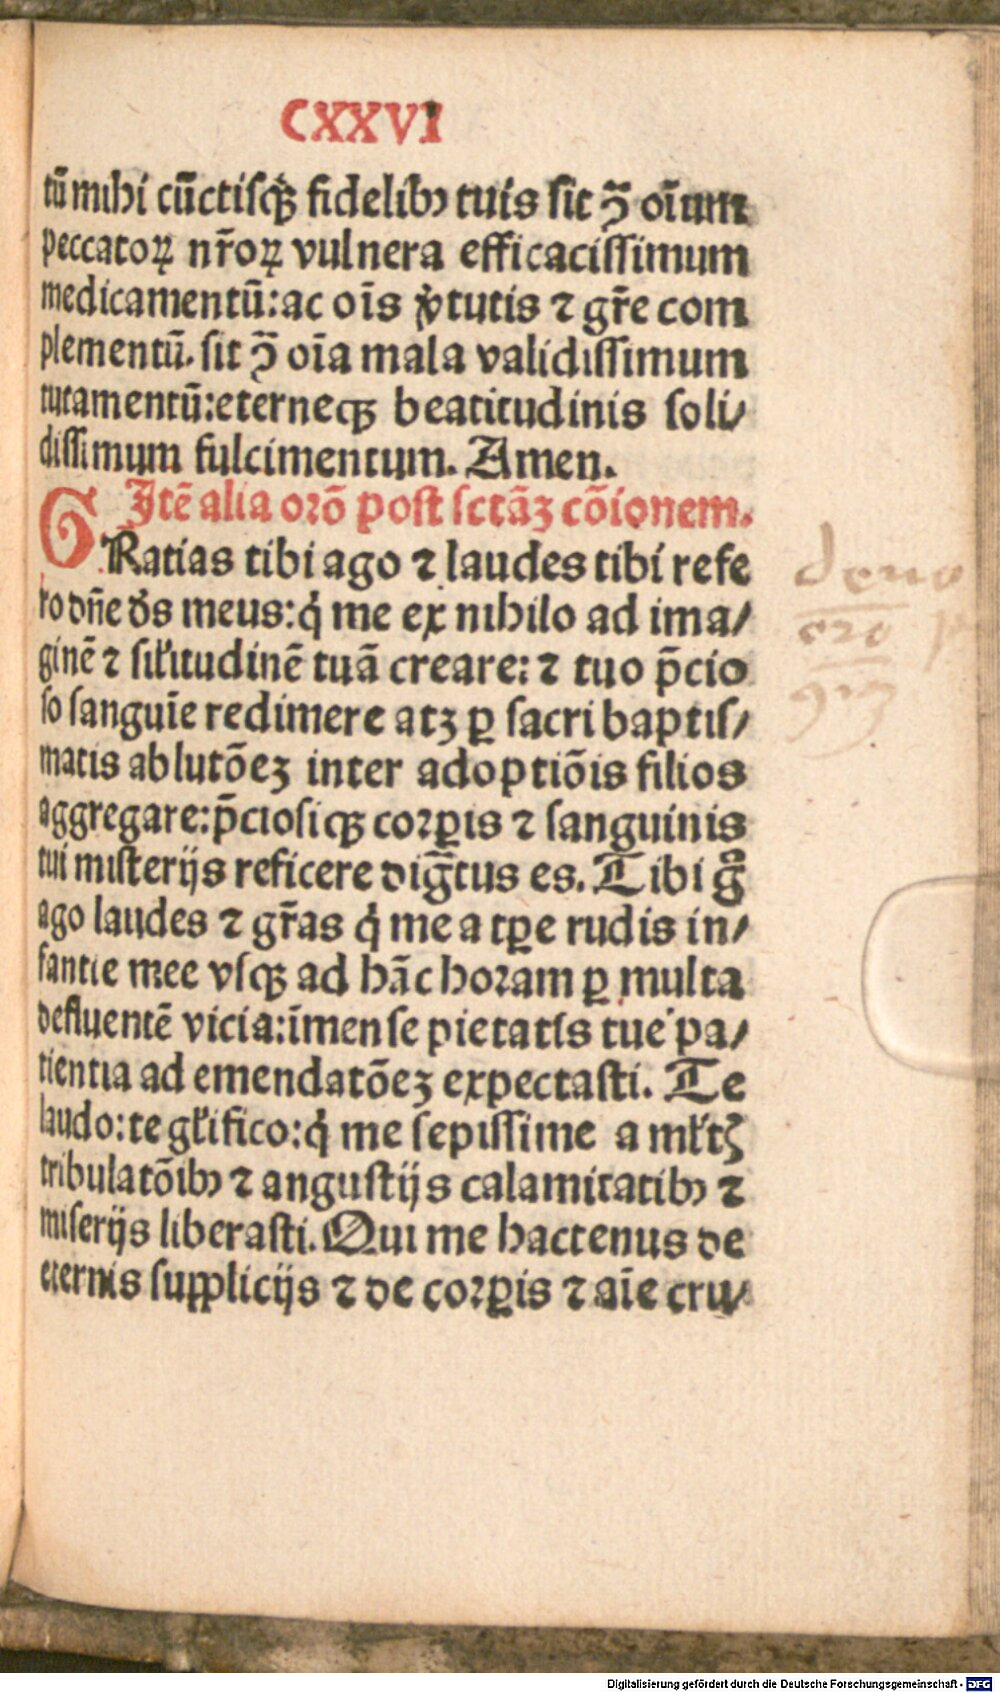 CXXVI
tū mihi cūctisqꝫ fidelibꝰ tuis sit ꝯ̄ oīum
peccatoꝝ nr̄oꝝ vulnera efficacissimum
medicamentū: ac oīs v̓tutis ⁊ gr̄e com
plementū. sit ꝯ̄ oīa mala validissimum
tutamentū: eterneqꝫ beatitudinis soli/
dissimum fulcimentum. Amen.
Itē alia orō post sctāꝫ cōionem.
GRatias tibi ago ⁊ laudes tibi refe
ro dn̄e ds̄ meus: q̇ me ex nihilo ad ima/
ginē ⁊ sil̓itudinē tuā creare: ⁊ tuo p̄cio
so sanguīe redimere atꝫ ꝑ sacri baptis/
matis ablutōeꝫ inter adoptiōis filios
aggregare: p̄ciosiqꝫ corꝑis ⁊ sanguinis
tui misterijs reficere diḡtus es. Tibi gͦ
ago laudes ⁊ gr̄as q̇ me a tꝑe rudis in/
fantie mee vsqꝫ ad hāc horam ꝑ multa
defluentē vicia: īmense pietatis tue pa/
tientia ad emendatōeꝫ expectasti. Te
laudo: te gl̓ifico: q̇ me sepissime a ml̓tꝭ
tribulatōibꝰ ⁊ angustijs calamitatibꝰ ⁊
miserijs liberasti. Qui me hactenus de
eternis supplicijs ⁊ de corꝑis ⁊ aīe cru/
Digitalisierung gefördert durch die Deutsche Forschungsgemeinschaft - DFG